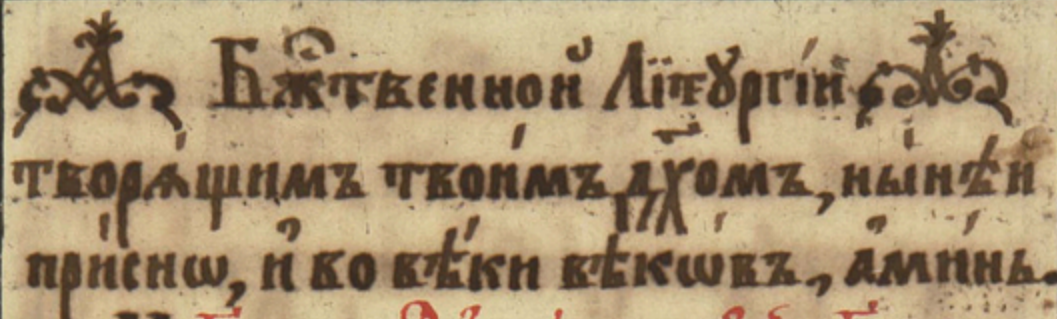 Бж҃твеннои Лїтꙋргі́и
творѧ́щимъ твои́мъ дх҃омъ, ны́нѣ и
при́сниѡ, и҆ во вѣ́ки вѣкѡ́въ, а҆ми́нь.